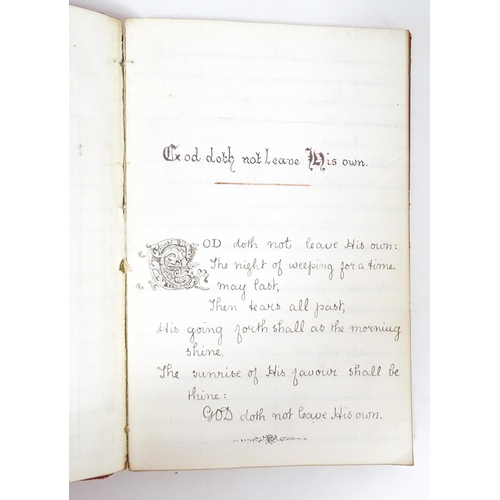 God doth not leave His own.
GOD doth not leave His own:
The night of weeping for a time
may last,
Then tears all past,
His going forth shall as the morning
shine,
The sunrise of His favour shall be
thine:
GOD doth not leave His own.